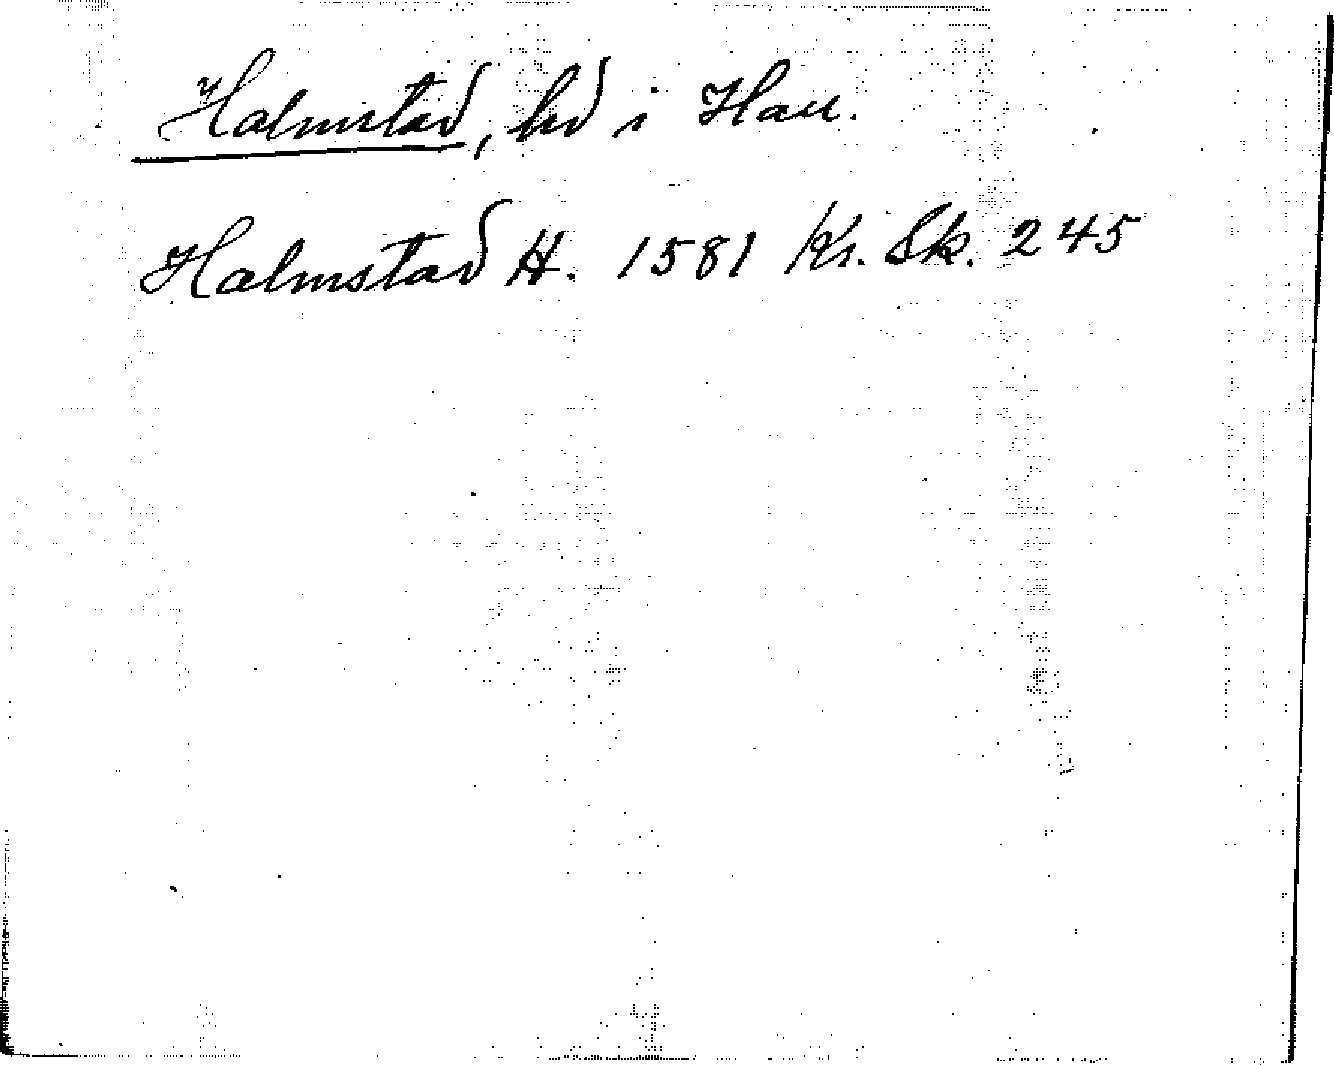 Halmstad, hd i Hall.
Halmstad H. 1581 Kr. Sk. 245